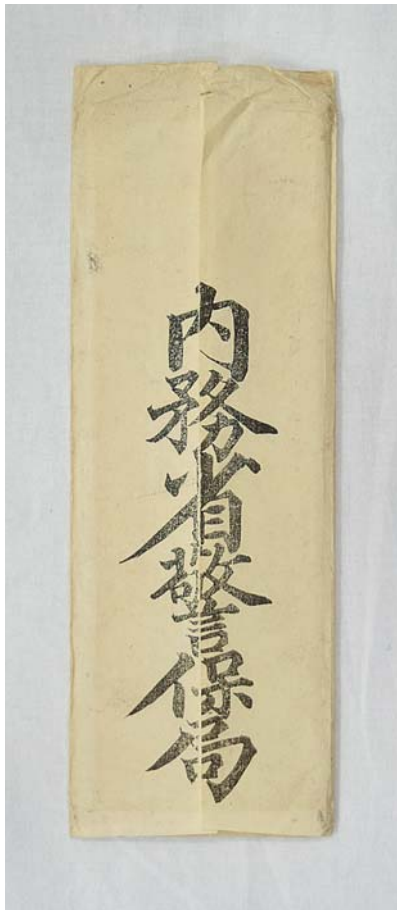 内務省警保局